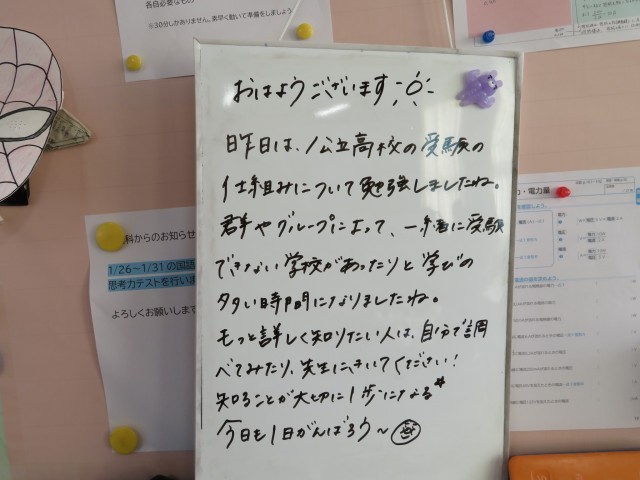 各自必要なもの
※30分しかありません。素早く動いて準備をしましょう
おはようございます
昨日は、公立高校の受験の
仕組みについて勉強しましたね。
群やグループによって、一緒に受験
できない学校があったりと学びの
多い時間になりましたね。
もっと詳しく知りたい人は、自分で調
べてみたり、先生にきいてください！
知ることが大切に1歩になる
今日も1日がんばろう〜
科からのお知らせ
1/26～1/31の国語
思考力テストを行いま
よろしくお願いします
力・電力量